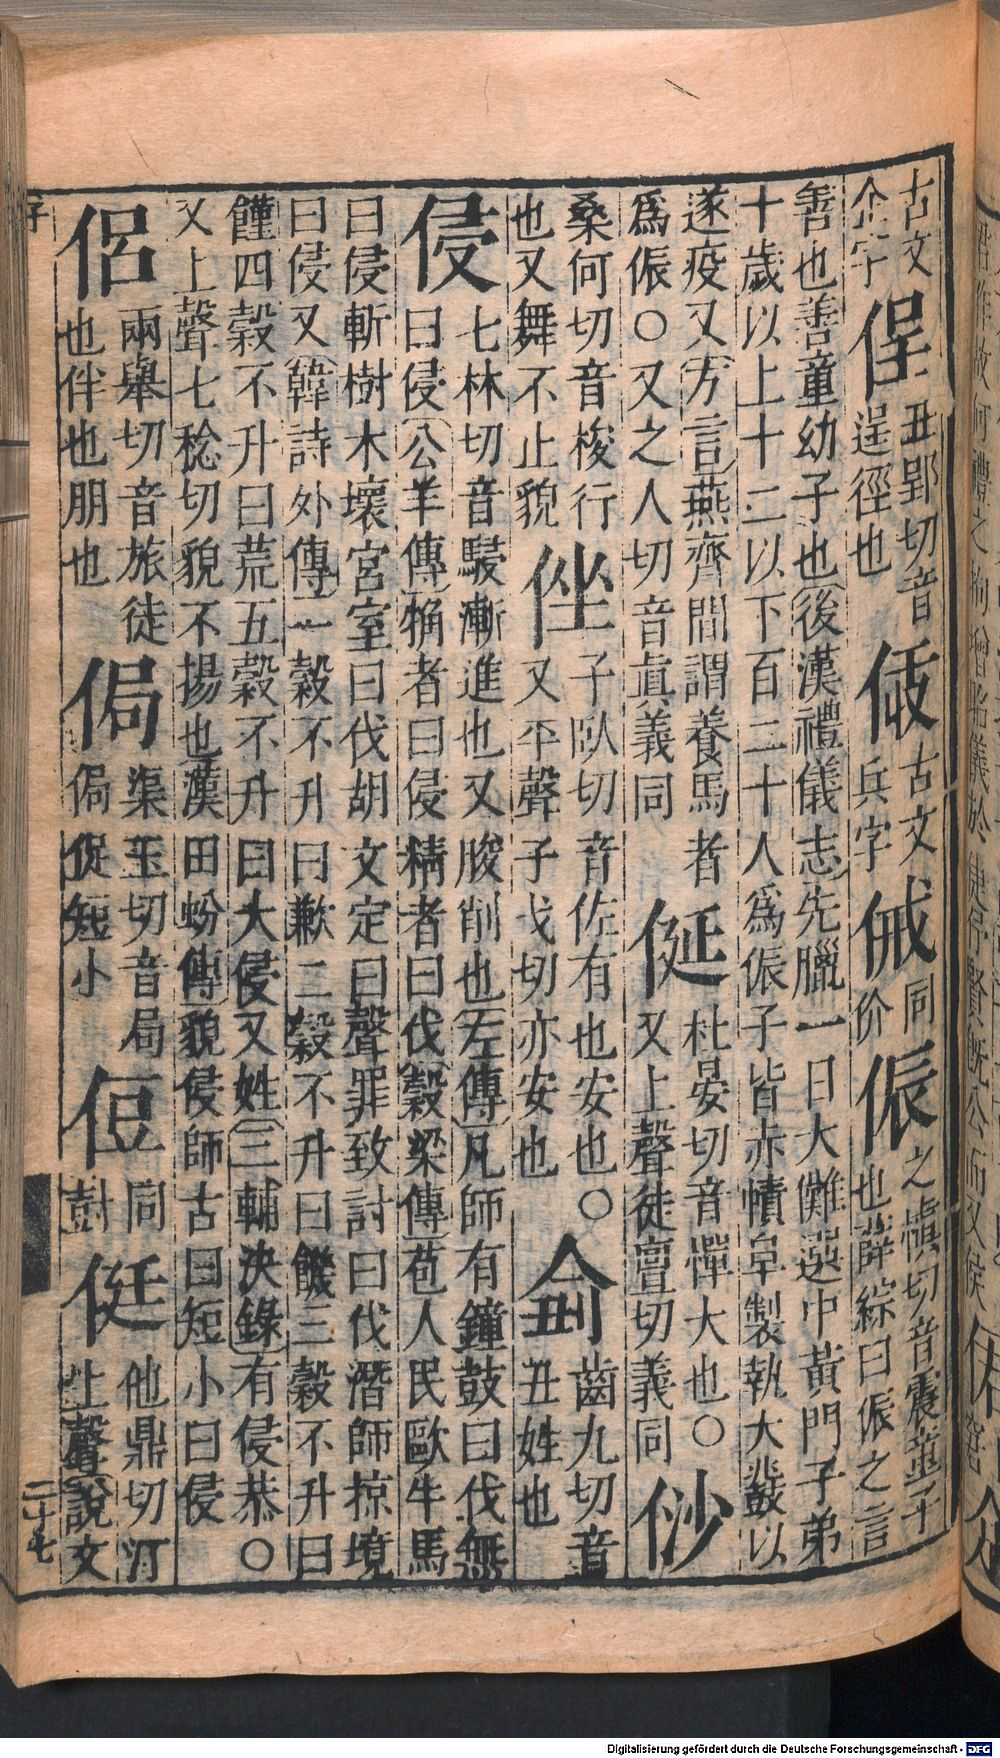 古文企字 侱 丑郢切音逞徑也 古文兵字 㑘 同价 侲 之慎切音震童子也薛綜曰侲之言
善也善童幼子也(後漢禮儀志)先臘一日大儺選中黃門子弟
十歲以上十二以下百二十人爲侲子皆赤幘皁製執大鼗以
遂疫又(方言)燕齊間謂養馬者爲侲○又之人切音眞義同 杜晏切音憚大也○又上聲徒亶切義同
桑何切音梭行也又舞不止貌 侳 子臥切音佐有也安也○又平聲子戈切亦安也 齒九切音丑姓也
侵 七林切音駸漸進也又朘削也(左傳)凡師有鐘鼓曰伐無曰侵(公羊傳)觕者曰侵精者曰伐(穀梁傳)苞人民毆牛馬
曰侵斬樹木壞宮室曰伐胡文定曰聲罪致討曰伐潛師掠境
曰侵又(韓詩外傳)一穀不升曰歉二穀不升曰饑三穀不升曰
饉四穀不升曰荒五穀不升曰大侵又姓(三輔決錄)有侵恭○
又上聲七稔切貌不揚也漢田蚡傳貌侵師古曰短小曰侵
侶 兩舉切音旅徒也伴也朋也 侷 渠玉切音局侷促短小 侸 同尌 侹 他鼎切汀上聲(說文
子
二十七